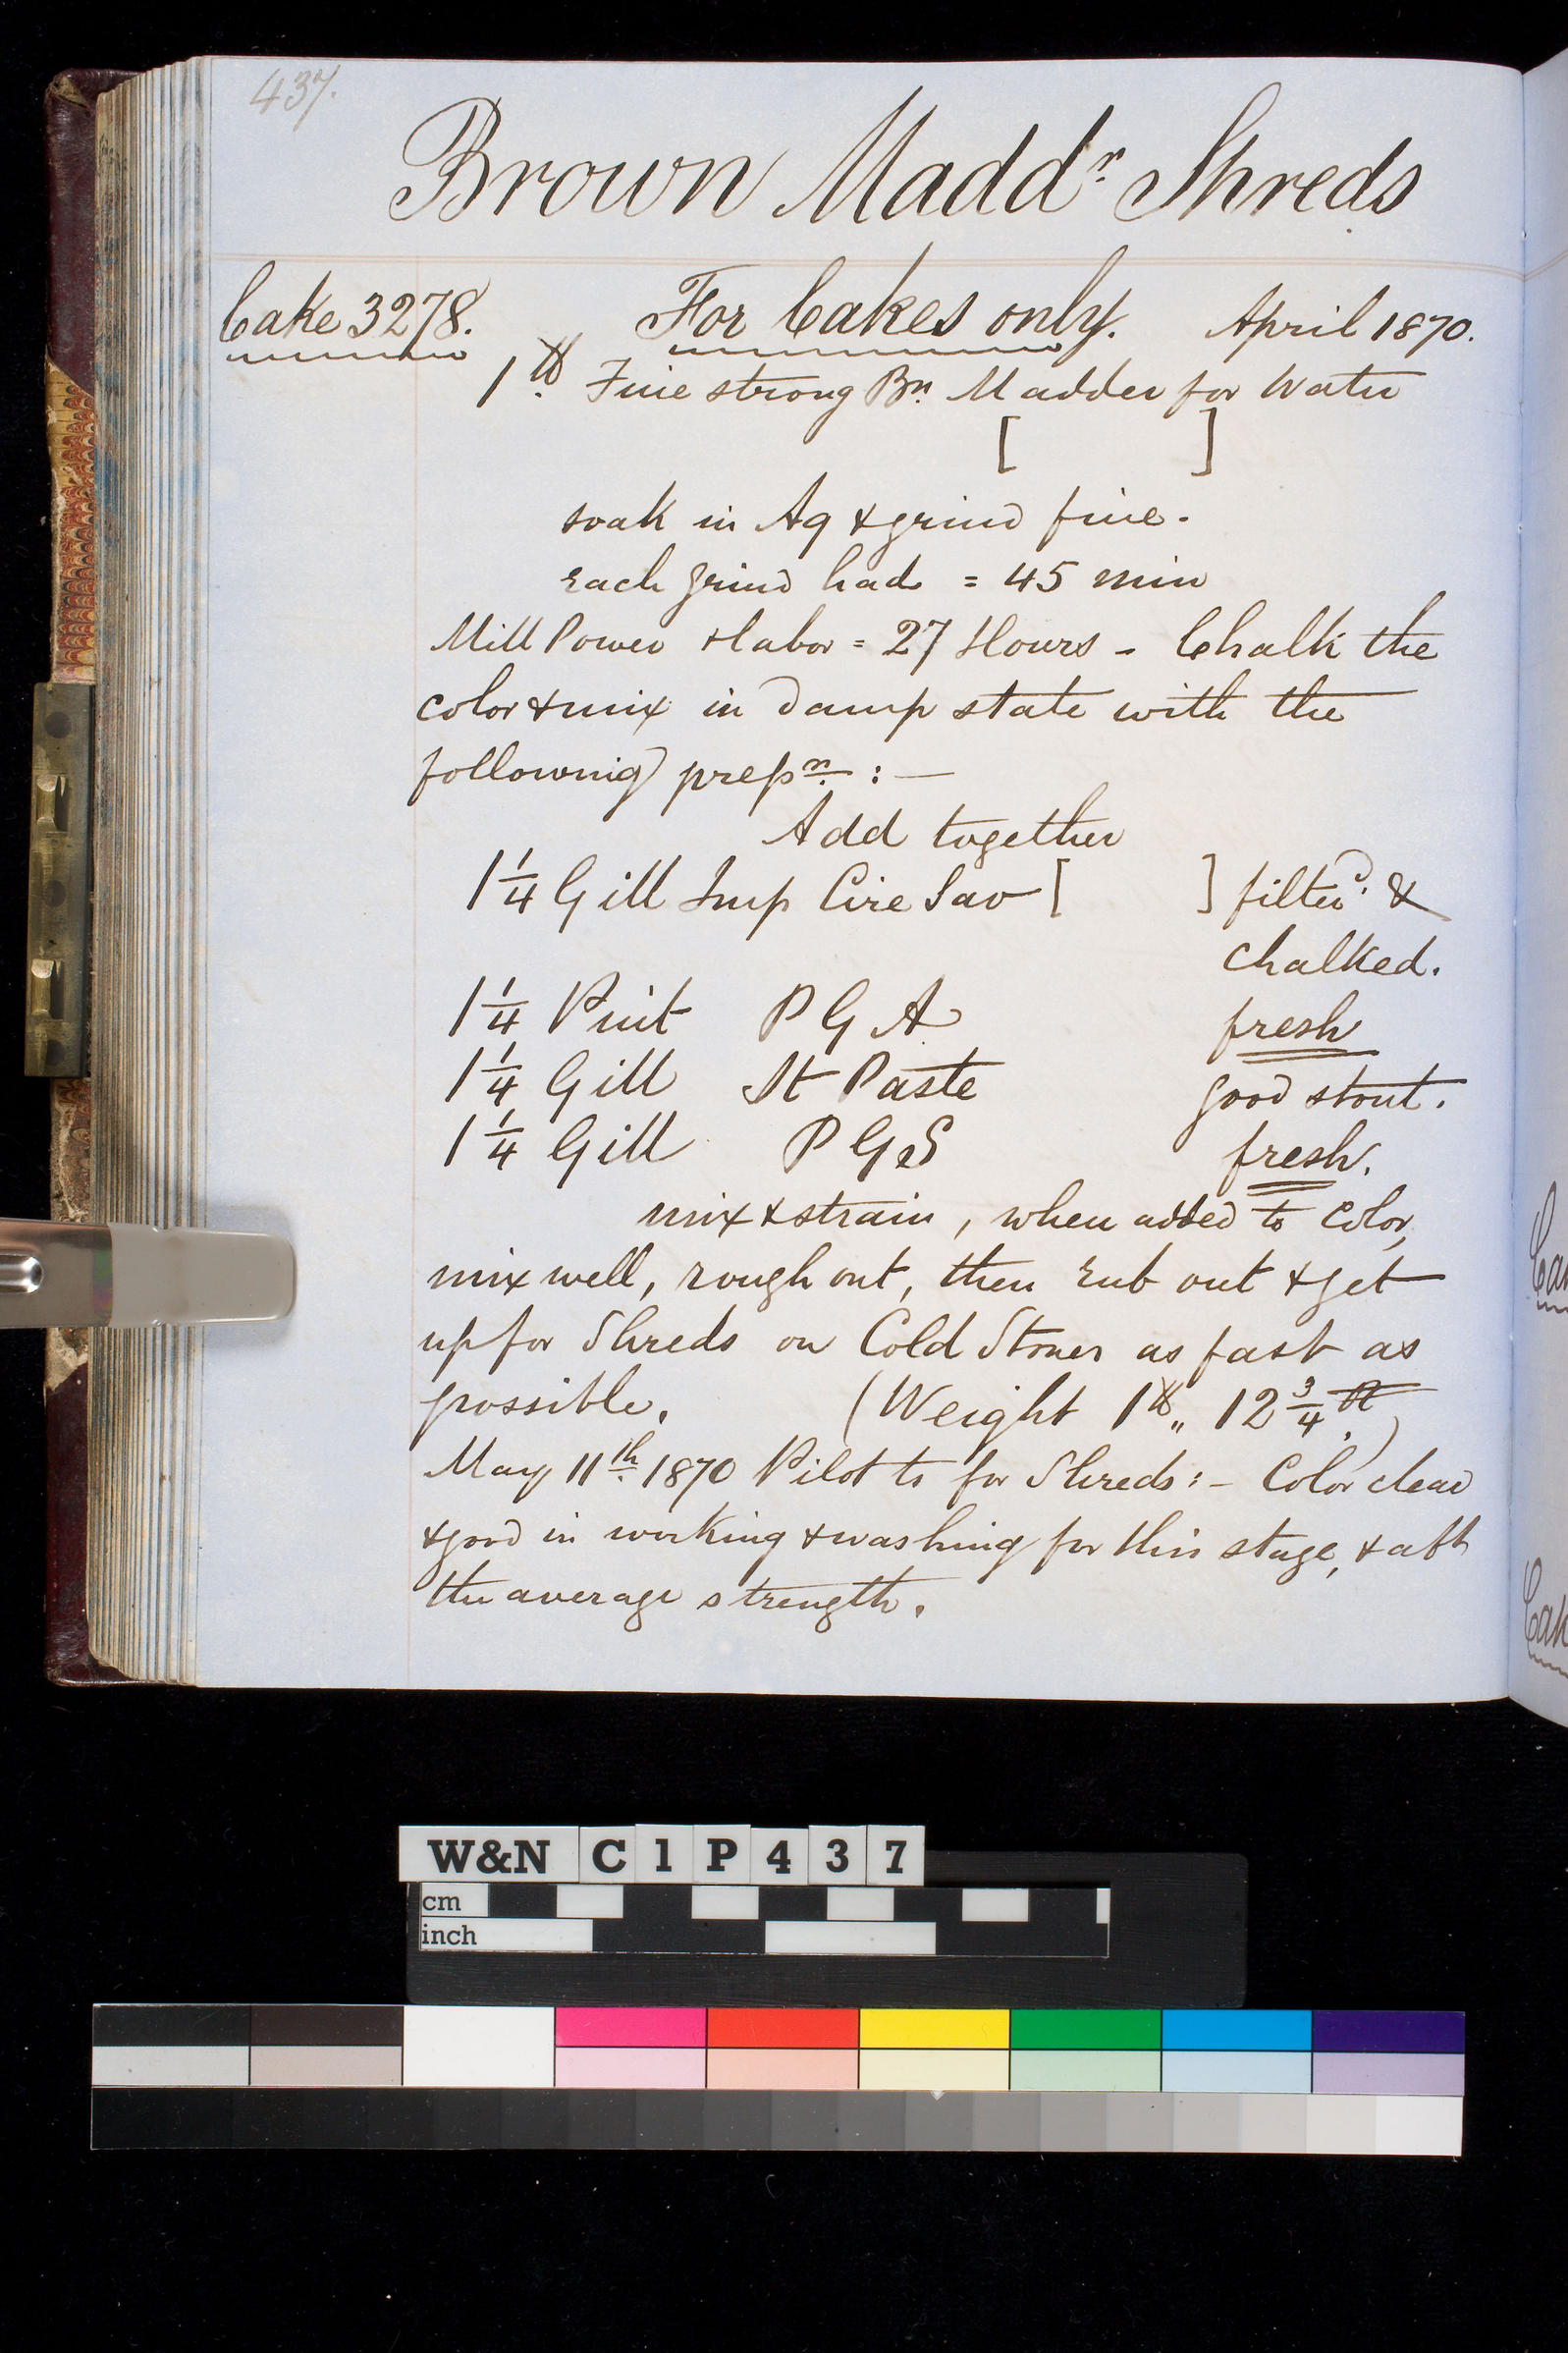 437.
Brown Maddr Shreds
Cake 3278. For Cakes only. April 1870.
1 lb Fine strong Bn. Madder for Water
[ ]
soak in Aq & grind fine.
Each grind had = 45 min
Mill Power & labor = 27 Hours - Chalk the
color & mix in damp state with the
following prepn. : —
Add together
1 1/4 Gill Imp Cire Sav [ ] filterd. &
chalked.
1 1/4 Pint P G A fresh
1 1/4 Gill St Paste good stout.
1 1/4 Gill P G S fresh.
mix & strain, when added to color,
mix well, rough out, then rub out & get
up for Shreds on Cold Stones as fast as
possible. (Weight 1 lb „ 12 3/4)
May 11th. 1870 Pilot ts for Shreds :- Color clear
& good in working & washing for this stage, & abt
the average strength.
Ca
Cak
W&N C 1 P 4 3 7
cm
inch